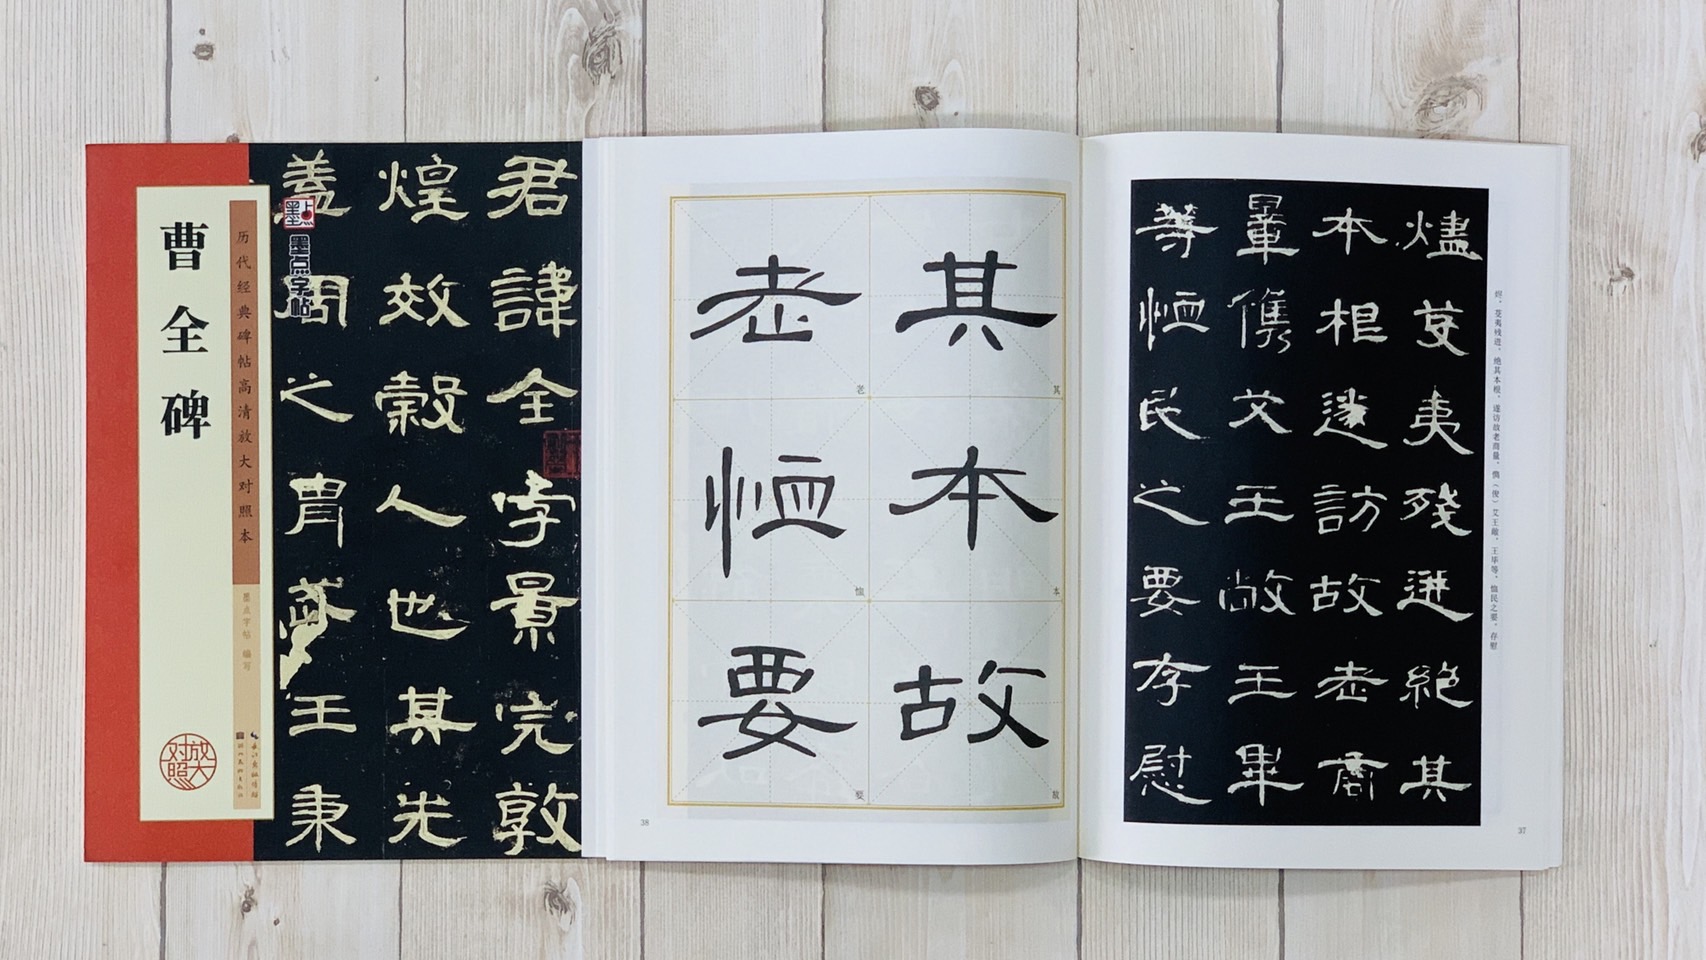 曹全碑
历代经典碑帖高清放大对照本
墨点字帖 编写
放大对照
长江出版传媒
湖北美术出版社
墨点
墨点字帖
君諱全字景完敦
煌效穀人也其先
蓋周之胄武王秉
燼芟夷殘迸絕其
本根遂訪故老商
量儁艾王敞王畢
等恤民之要存慰
烬，芟夷残迸，绝其本根。遂访故老商量，儁（俊）艾王敞、王毕等，恤民之要，存慰
37
其本故
其
本
故
老恤要
老
恤
要
38